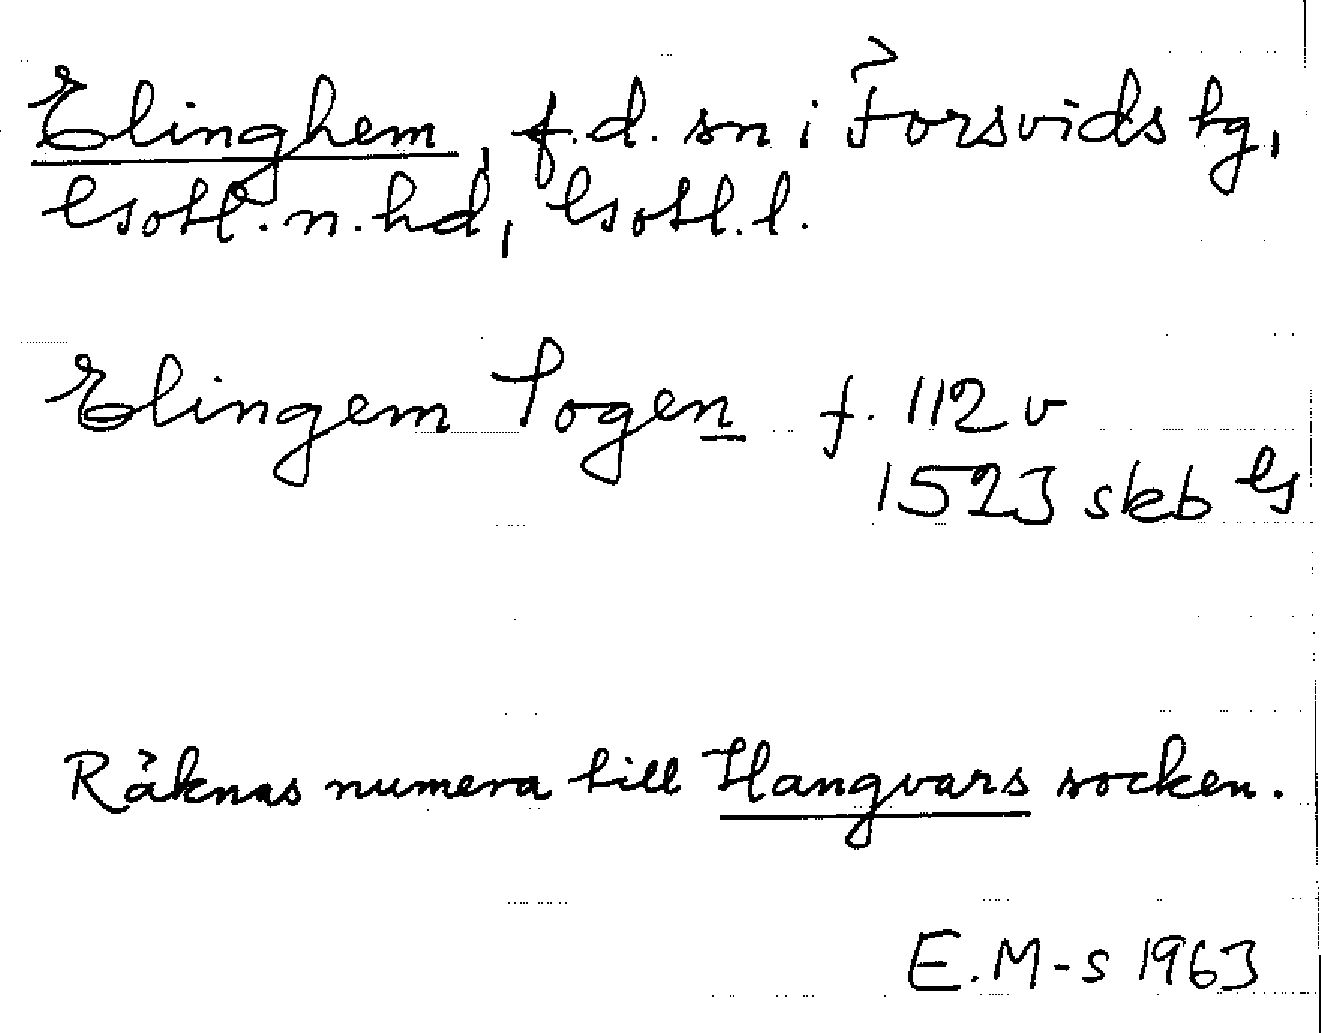 Elinghem, f.d. sn i Forsvids tg,
Gotl. n. hd, Gotl. l.
Elingem Sogen f. 112 v
1523 skb G
Räknas numera till Hangvars socken.
E. M-s 1963